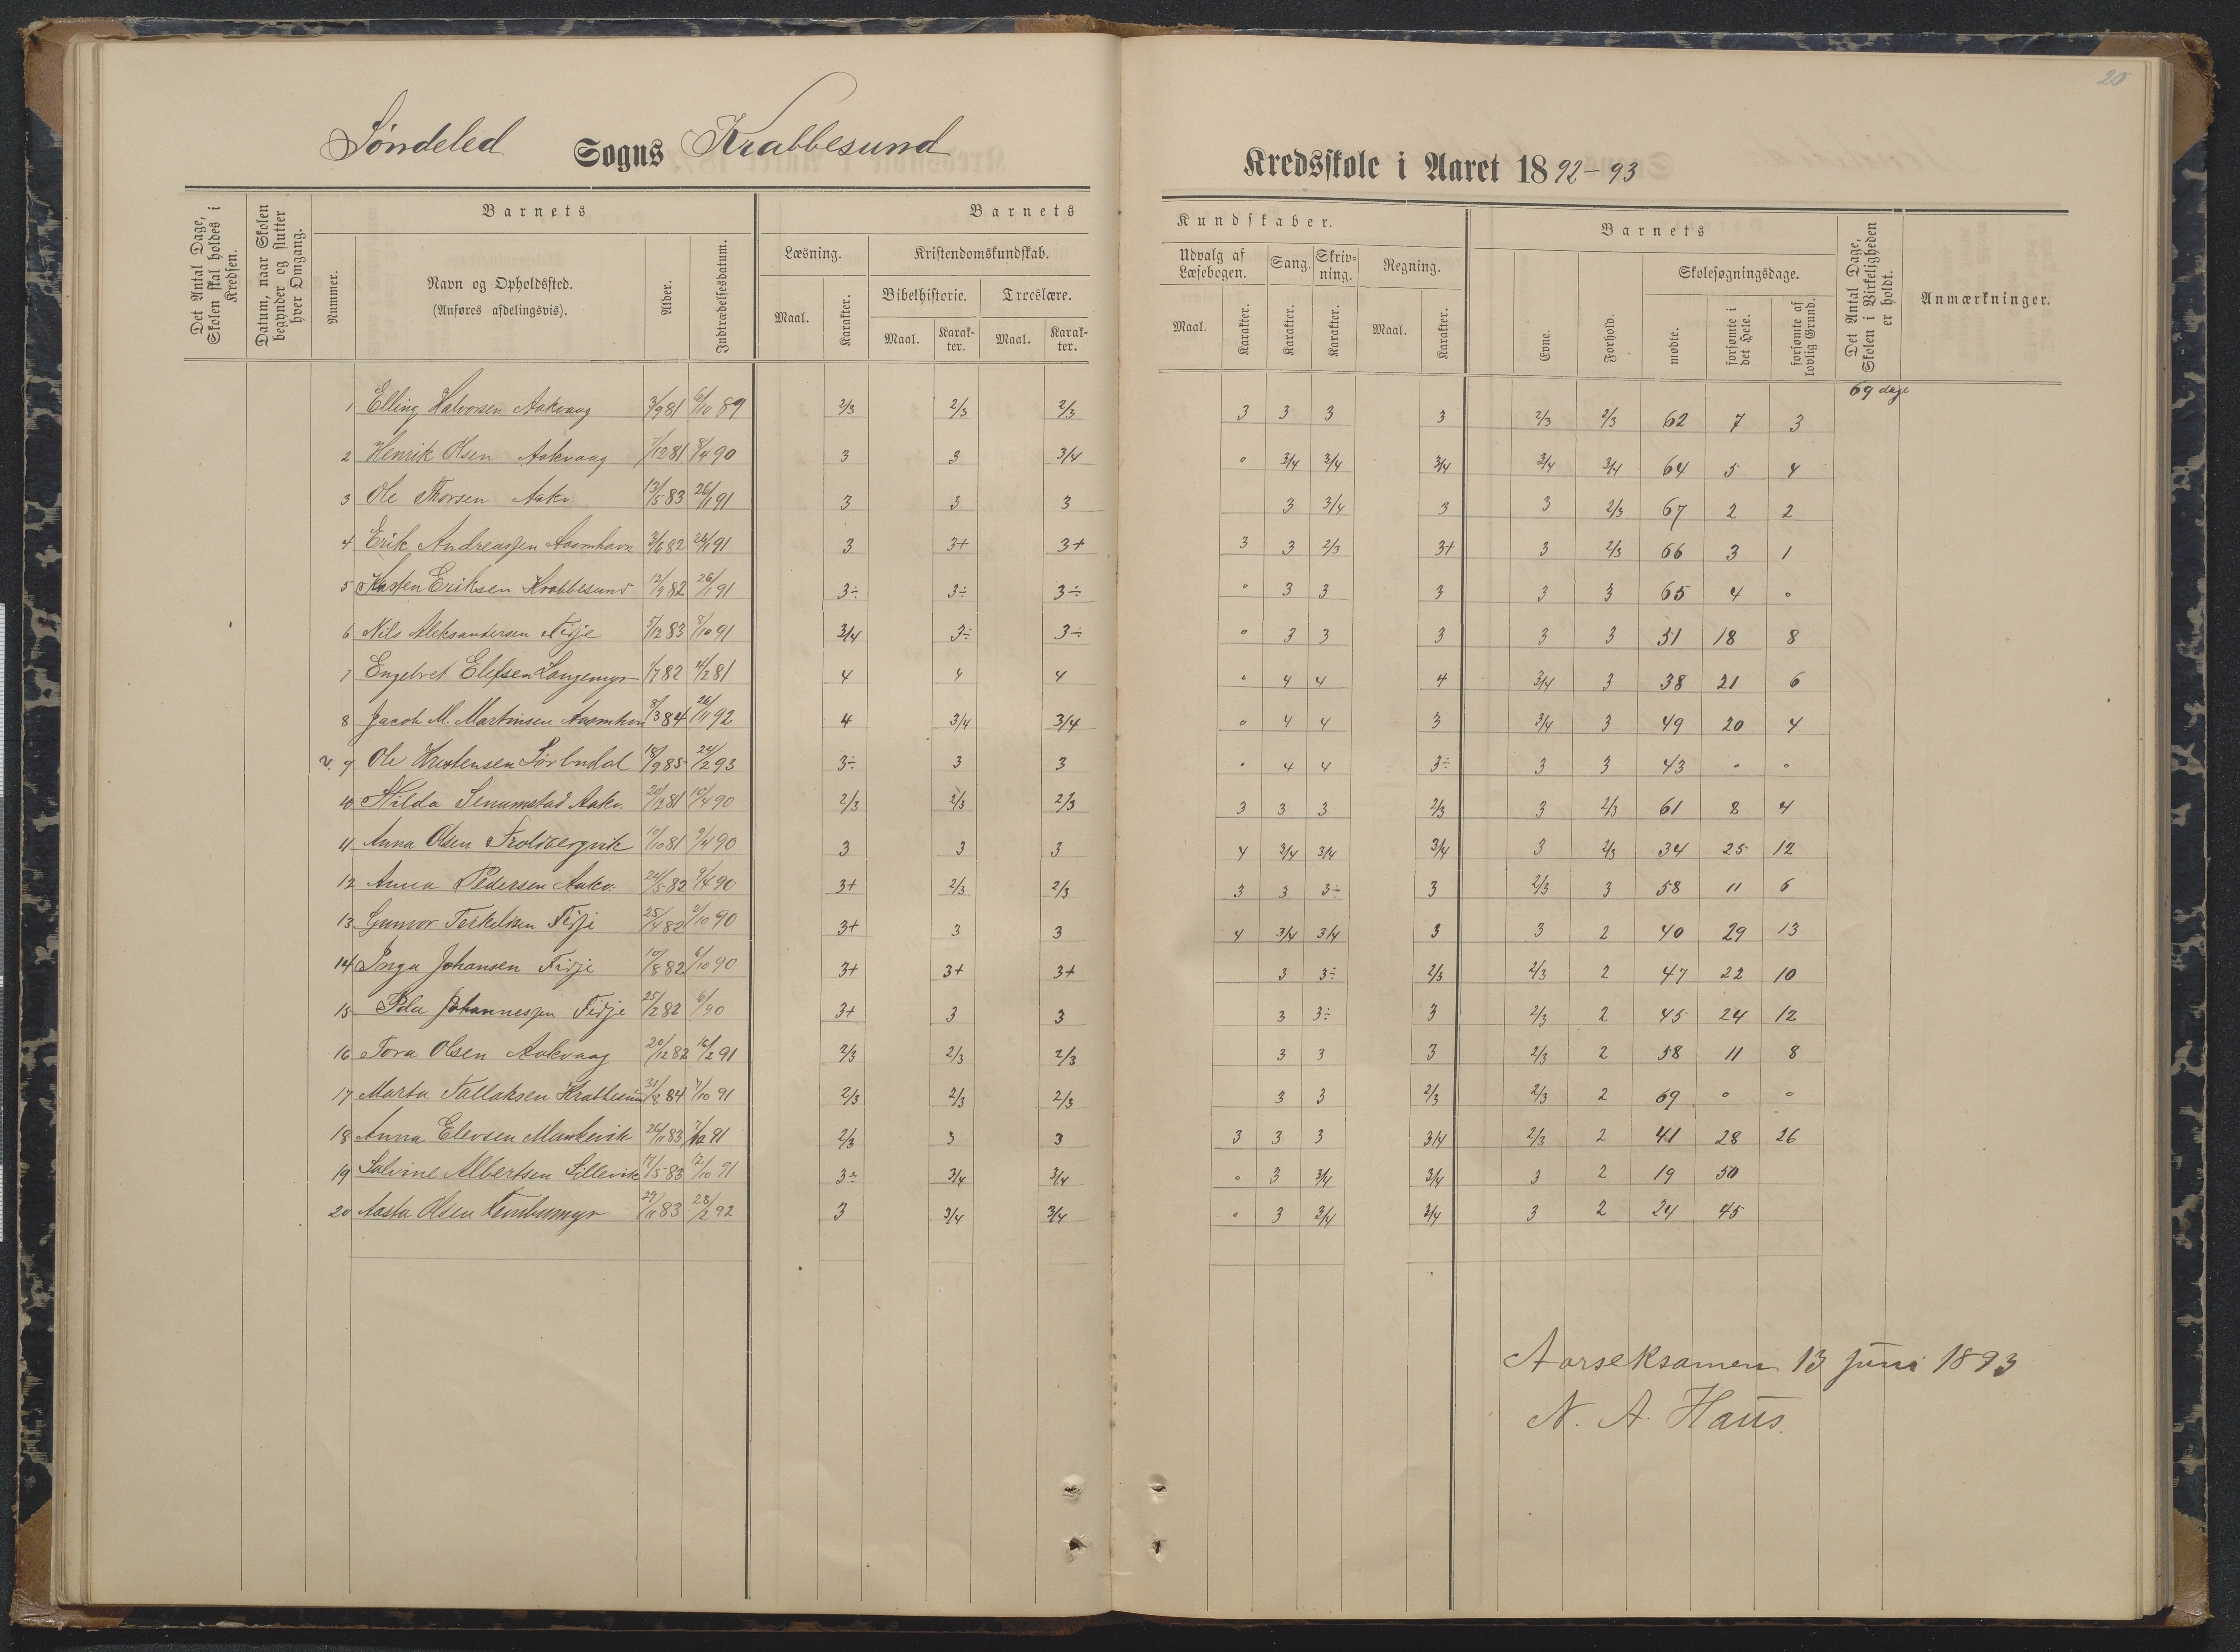 20
Søndeled Sogns Krabbesund Kredsskole i Aaret 1892-93
Det Antal Dage, Skolen skal holdes i Kredsen.
Datum, naar Skolen begynder og slutter hver Omgang.
Barnets
Nummer.
Navn og Opholdssted.
(Anføres afdelingsvis).
Alder.
Indtrædelsesdatum.
Barnets Kundskaber.
Læsning.
Maal. Karakter.
Kristendomskundskab.
Bibelhistorie. Troeslære.
Maal. Karakter. Maal. Karakter.
Udvalg af Læsebogen. Sang. Skrivning. Regning.
Maal. Karakter. Karakter. Karakter. Maal. Karakter.
Barnets
Evne. Forhold.
Skolesøgningsdage.
mødte. forsømte i det Hele. forsømte af lovlig Grund.
Det Antal Dage, Skolen i Virkeligheden er holdt.
Anmærkninger.
69 dage
1 Elling Halvorsen Aakvaag 3/9 81 6/10 89 2/3 2/3 2/3 3 3 3 3 2/3 2/3 62 7 3
2 Henrik Olsen Aakvaag 7/12 81 8/4 90 3 3 3/4 0 3/4 3/4 3/4 3/4 3/4 64 5 4
3 Ole Thorsen Aakv. 13/5 83 26/1 91 3 3 3 3 3/4 3 3 2/3 67 2 2
4 Erik Andreassen Aasmhavn 3/6 82 26/1 91 3 3+ 3+ 3 3 2/3 3+ 3 2/3 66 3 1
5 Kasten Eriksen Krabbesund 12/9 82 26/1 91 3÷ 3÷ 3÷ 0 3 3 3 3 3 65 4 0
6 Nils Aleksandersen Fidje 5/12 83 8/10 91 3/4 3÷ 3÷ 0 3 3 3 3 3 51 18 8
7 Engebret Elefsen Langemyr 1/7 82 4/2 81 4 4 4 0 4 4 4 3/4 3 38 21 6
8 Jacob M. Martinsen 8/3 84 26/11 92 4 3/4 3/4 0 4 4 3 3/4 3 49 20 4
9 Ole Kristensen 18/9 85 24/2 93 3÷ 3 3 0 4 4 3÷ 3 3 43 0 0
10 Hilda Senumstad Aakv. 20/12 81 10/4 90 2/3 2/3 2/3 3 3 3 2/3 3 2/3 61 8 4
11 Anna Olsen 10/10 81 9/4 90 3 3 3 4 3/4 3/4 3/4 3 2/3 34 25 12
12 Anna Pedersen Aakv. 24/5 82 9/4 90 3+ 2/3 2/3 3 3 3÷ 3 2/3 3 58 11 6
13 Gunvor Terkelsen Fidje 25/4 82 2/10 90 3+ 3 3 4 3/4 3/4 3 3 2 40 29 13
14 Inga Johansen Fidje 10/8 82 6/10 90 3+ 3+ 3+ 3 3÷ 2/3 2/3 2 47 22 10
15 Johannessen Fidje 25/12 82 6/ 90 3+ 3 3 3 3÷ 3 2/3 2 45 24 12
16 Tora Olsen Aakvaag 20/12 82 16/2 91 2/3 2/3 2/3 3 3 3 2/3 2 58 11 8
17 Marta Tallaksen Krabbesund 31/8 84 7/10 91 2/3 2/3 2/3 3 3 2/3 2/3 2 69 0 0
18 Anna Elevsen 26/11 83 91 2/3 3 3 3 3 3 3/4 2/3 2 41 28 26
19 Salvine Albertsen Lillevik 17/5 83 12/10 91 3÷ 3/4 3/4 0 3 3/4 3/4 3 2 19 50
20 Aasta Olsen 29/11 83 28/2 92 3 3/4 3/4 0 3 3/4 3/4 3 2 24 45
Aarseksamen 13 juni 1893
N. A. Haus.